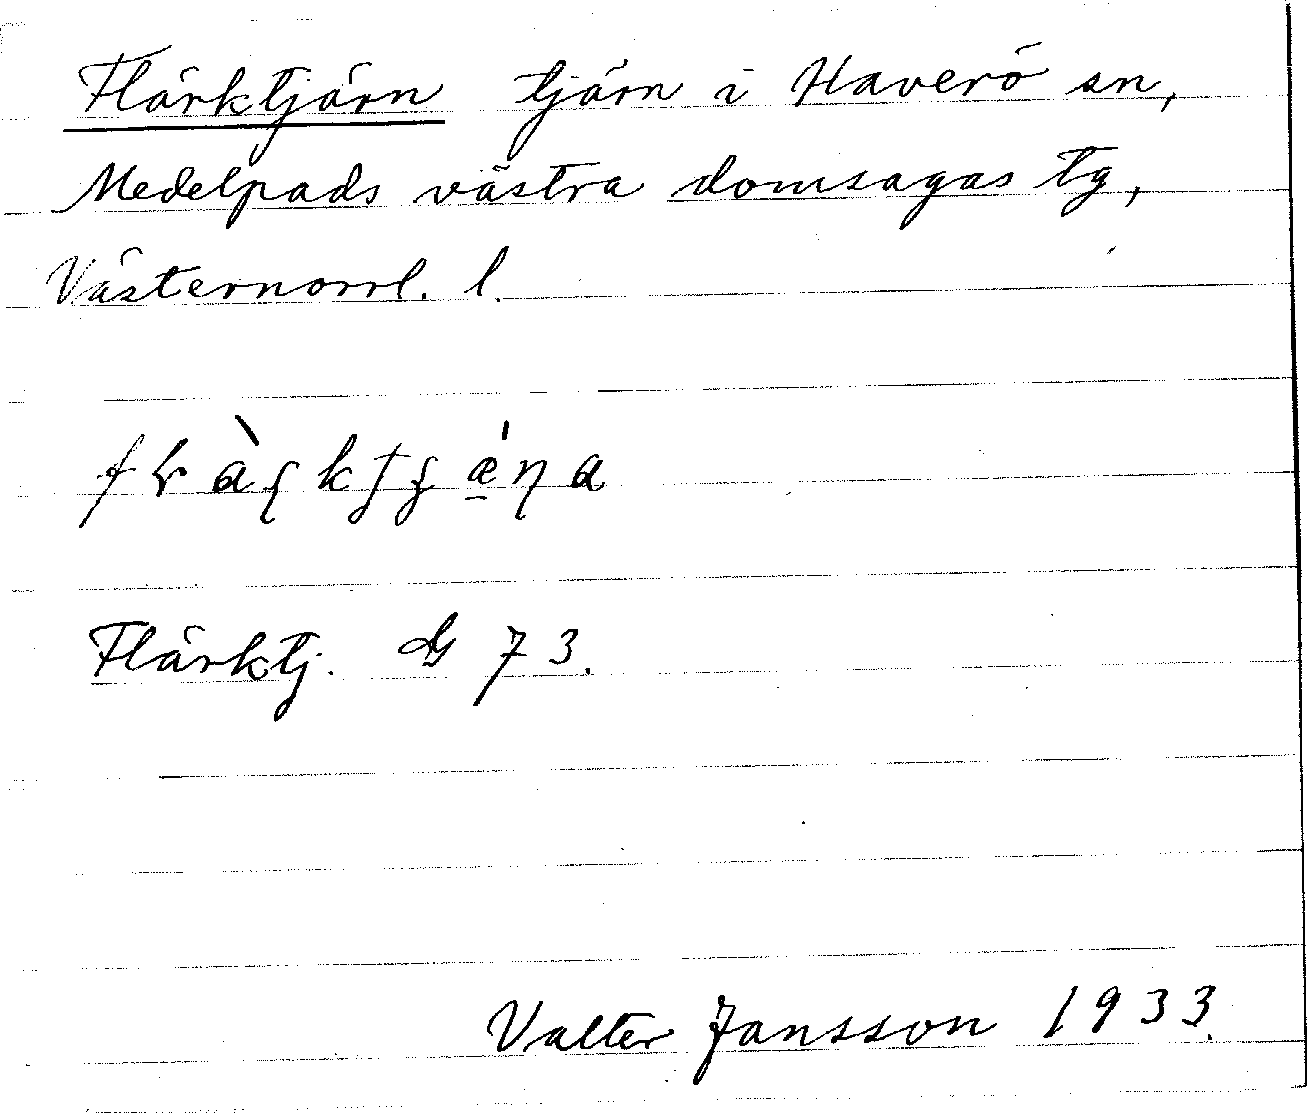 Flärktjärn tjärn i Haverö sn,
Medelpads västra domsagas tg,
Västernorrl. l.
Flärktj. G 73.
Valter Jansson 1933.